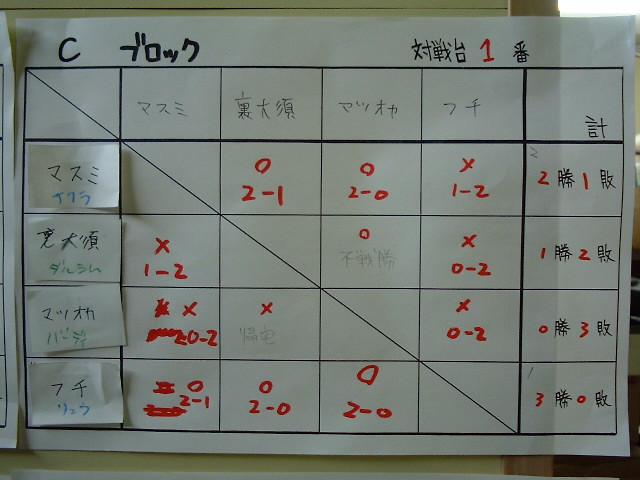 C ブロック 対戦台 1 番
マスミ 裏大須 マツオカ フチ 計
マスミ ○ ○ × 2勝1敗
サクラ 2-1 2-0 1-2
裏大須 × ○ × 1勝2敗
ダルシム 1-2 不戦勝 0-2
マツオカ × × × 0勝3敗
バーディ 0-2 帰宅 0-2
フチ ○ ○ ○ 3勝0敗
リュウ 2-1 2-0 2-0